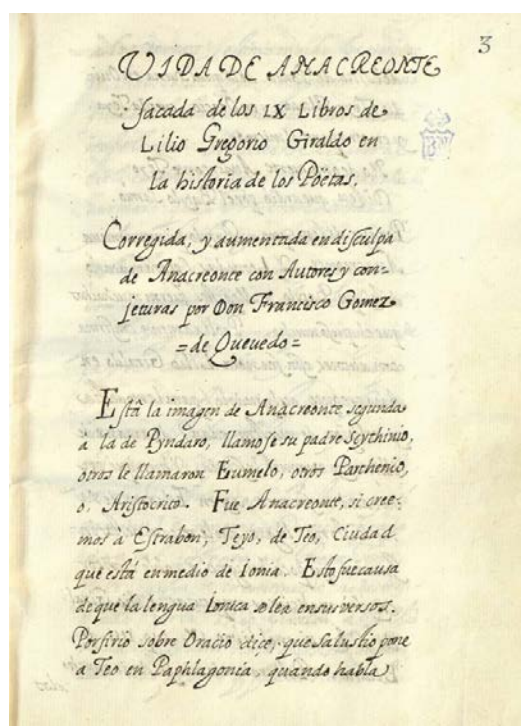 3
VIDA DE ANACREONTE
sacada de los IX Libros de
Lilio Gregorio Giraldo en
la historia de los Poëtas.
Corregida, y aumentada en disculpa
de Anacreonte con Autores y con=
jeturas por Don Francisco Gomez
=de Queuedo=
Està la imagen de Anacreonte segunda
a la de Pyndaro, llamose su padre Scythinio,
otros le llamaron Eumelo, otros Parthenio,
o, Aristocrito. Fue Anacreonte, si cree=
mos à Estrabon, Teyo, de Teo, Ciudad
que està en medio de Ionia. Esto fue causa
de que la lengua Ionica se lea en sus versos.
Porfirio sobre Oracio dice, que Salustio pone
a Teo en Paphlagonia, quando habla